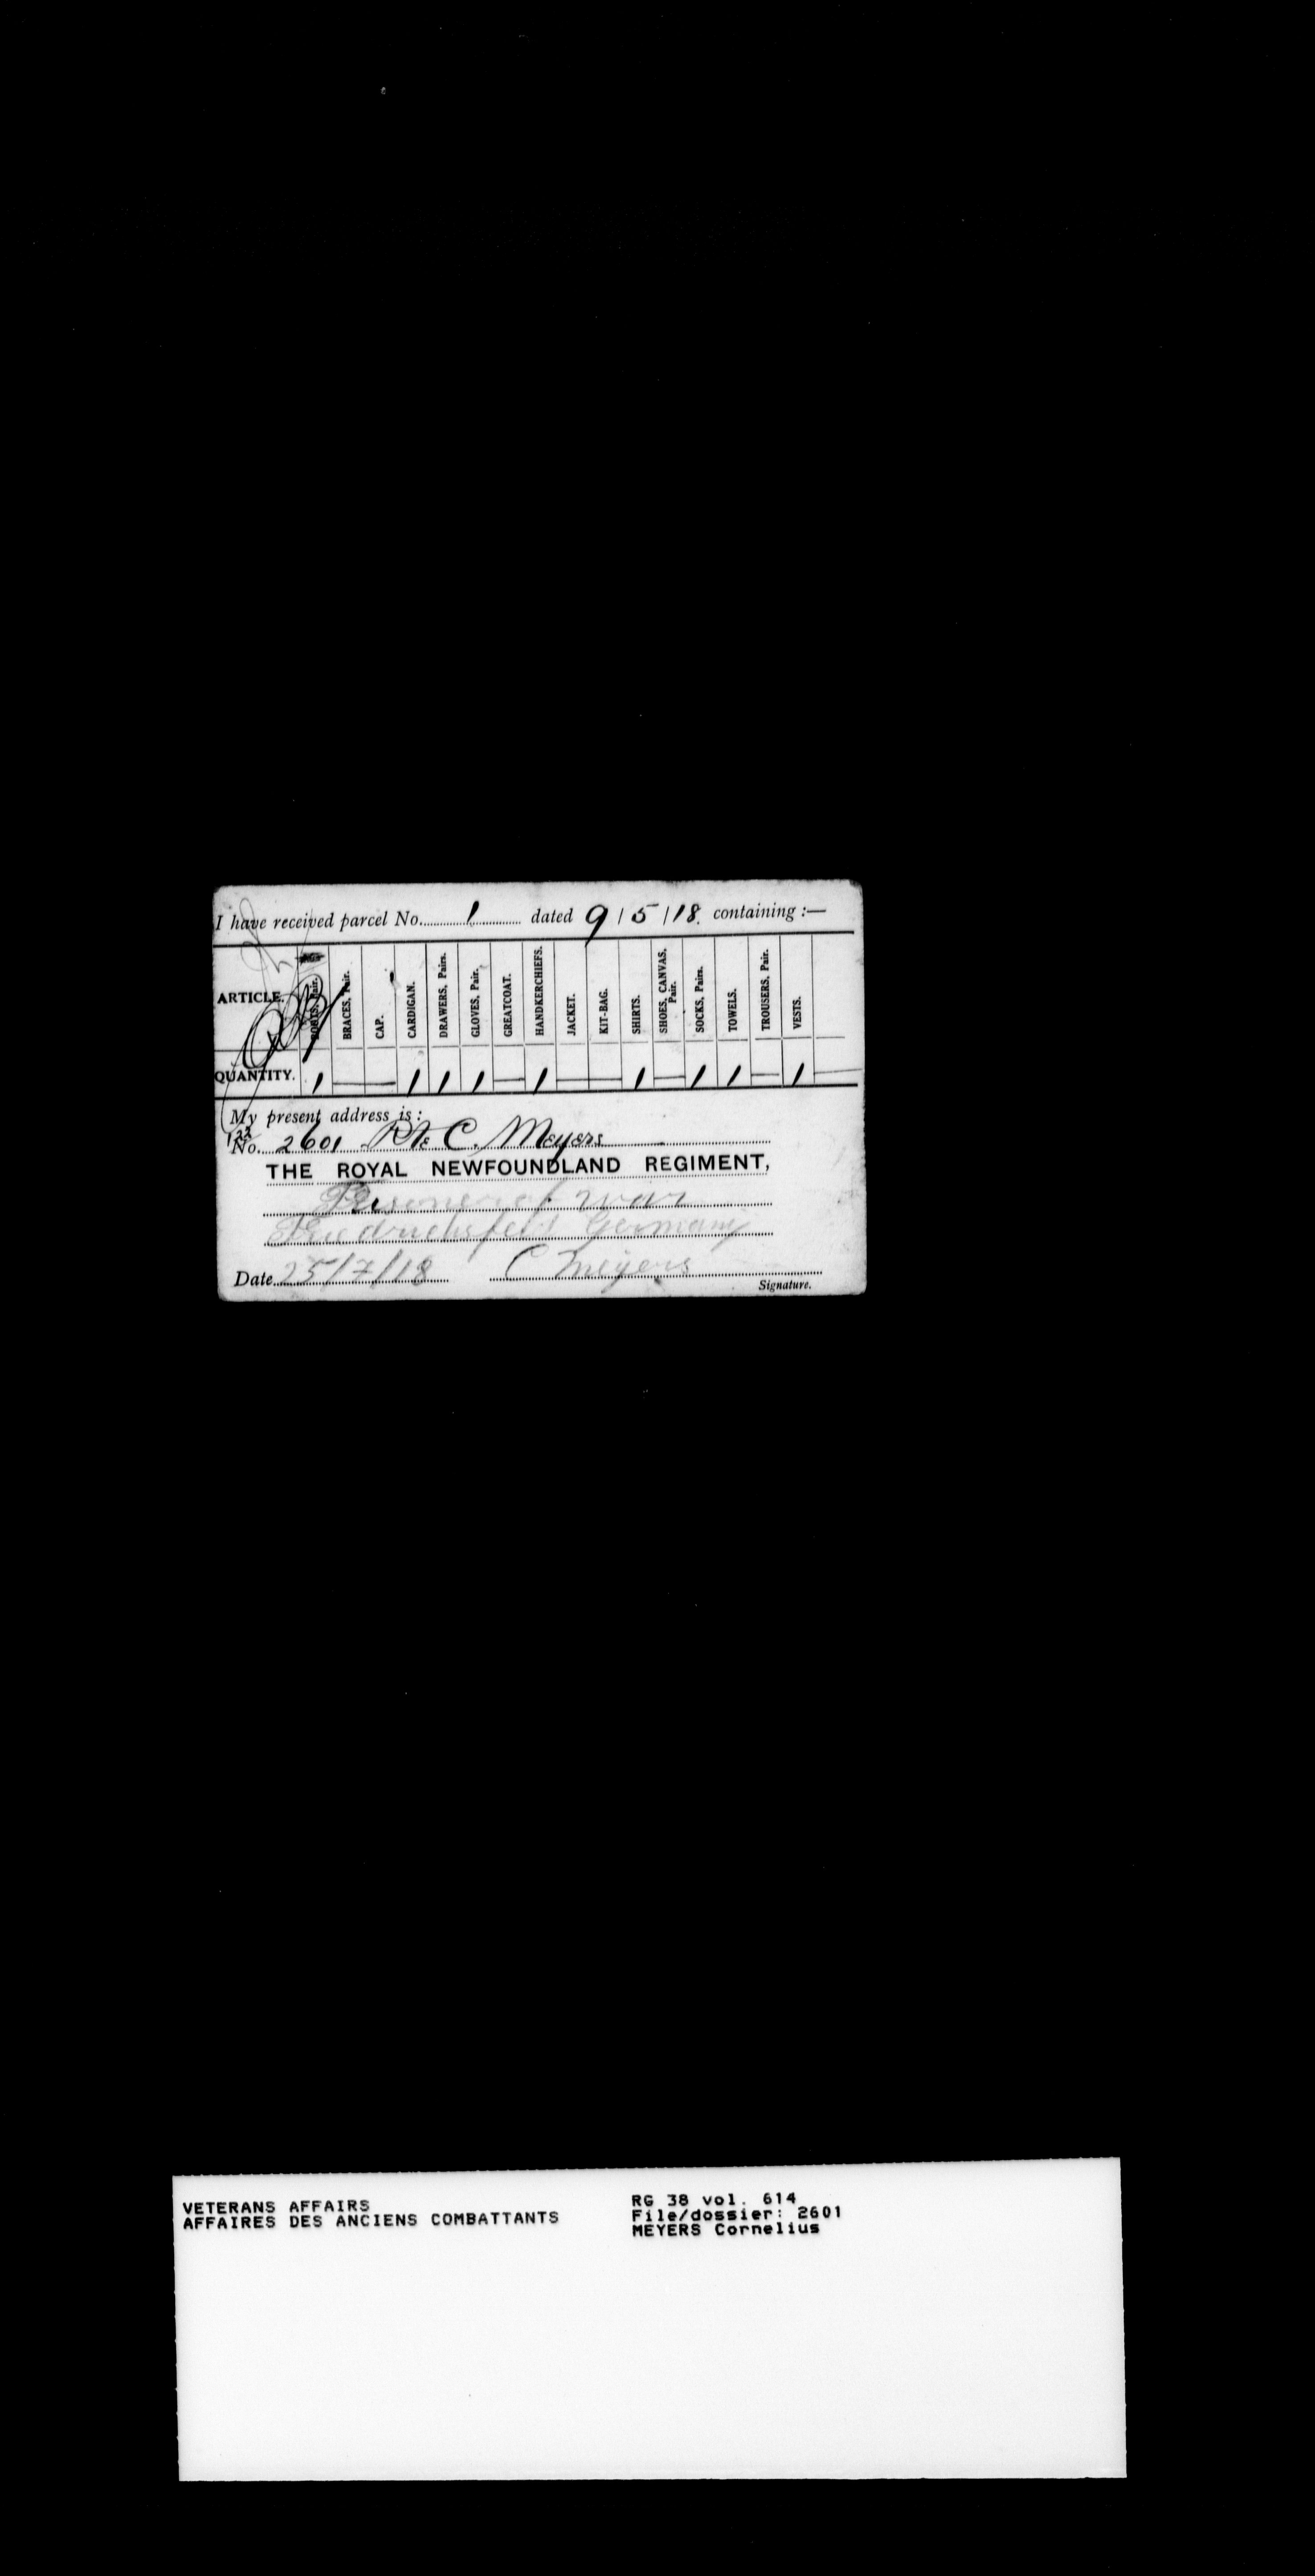 I have received parcel No. 1 dated 9/5/18. containing :—
ARTICLE. BOOTS, Pair. BRACES, Pair. CAP. CARDIGAN. DRAWERS, Pairs. GLOVES, Pair. GREATCOAT. HANDKERCHIEFS. JACKET. KIT-BAG. SHIRTS. SHOES, CANVAS, Pair. SOCKS, Pairs. TOWELS. TROUSERS, Pair. VESTS.
QUANTITY. 1 — — 1 1 1 — 1 — — 1 — 1 1 — 1 —
My present address is :
No. 2601 Pte C. Meyers
THE ROYAL NEWFOUNDLAND REGIMENT,
Prisoner of war
Friedrichsfeld Germany
Date 25/7/18 C Meyers
Signature.
VETERANS AFFAIRS RG 38 vol. 614
AFFAIRES DES ANCIENS COMBATTANTS File/dossier: 2601
MEYERS Cornelius